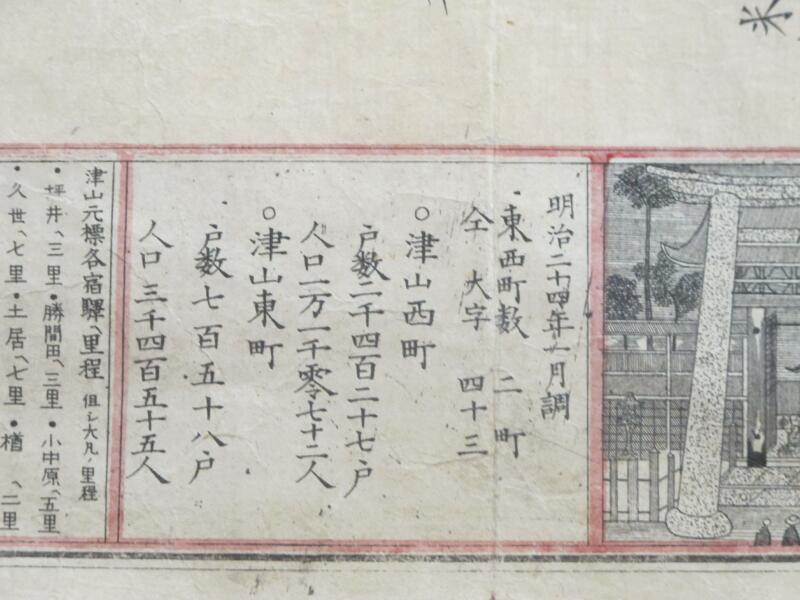 明治二十四年一月調
・東西町数 二町
仝 大字 四十三
○津山西町
戸数二千四百二十七戸
人口一万一千零七十二人
○津山東町
戸数七百五十八戸
人口三千四百五十五人
津山元標各宿驛ヘ里程 但シ大凡ノ里程
・坪井ヘ三里・勝間田ヘ三里・小中原ヘ五里
・久世ヘ七里・土居ヘ七里・楢ヘ二里